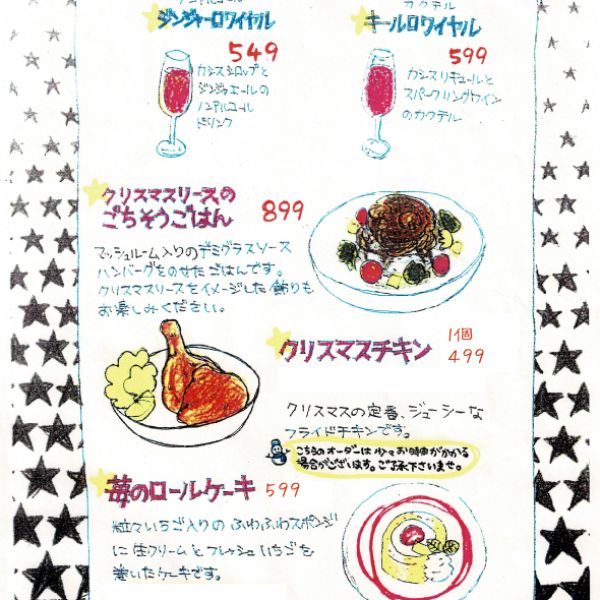 カクテル
ジンジャーロワイヤル
549
カシスシロップと
ジンジャエールの
ノンアルコール
ドリンク
キールロワイヤル
599
カシスリキュールと
スパークリングワイン
のカクテル
クリスマスリースの
ごちそうごはん
899
マッシュルーム入りのデミグラスソース
ハンバーグをのせたごはんです。
クリスマスリースをイメージした飾りも
お楽しみください。
クリスマスチキン
1個
499
クリスマスの定番、ジューシーな
フライドチキンです。
こちらのオーダーは少々お時間がかかる
場合がございます。ご了承下さいませ。
苺のロールケーキ 599
粒々いちご入りのふわふわスポンジ
に生クリームとフレッシュいちごを
巻いたケーキです。